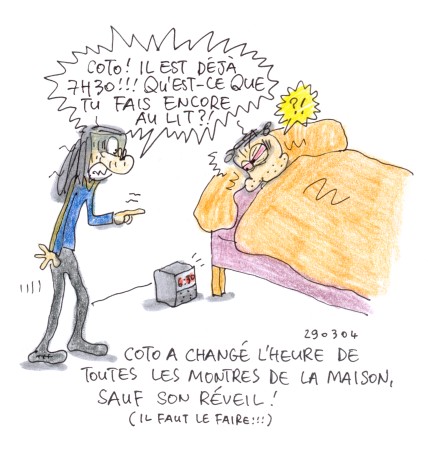 COTO! IL EST DÉJÀ
7H30!!! QU'EST-CE QUE
TU FAIS ENCORE
AU LIT?!
?!
6:30
290304
COTO A CHANGÉ L'HEURE DE
TOUTES LES MONTRES DE LA MAISON,
SAUF SON RÉVEIL!
(IL FAUT LE FAIRE!!!)